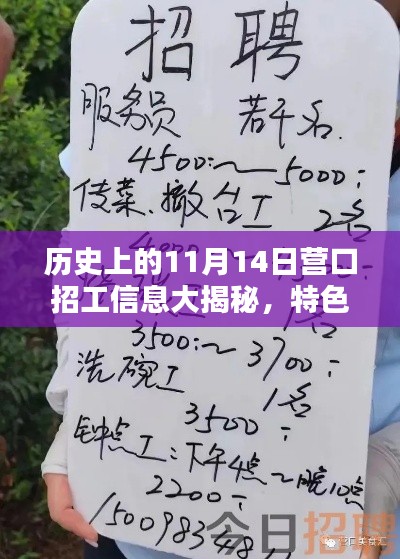 招聘
服务员 若干名
4500:~5000:
传菜、撤台工
2名
历史上的11月14日营口
招工信息大揭秘，特色
3500:~3700
洗碗工 1名
3500: 1名
钟点工:下午4点~晚10点
2200:
今日招聘